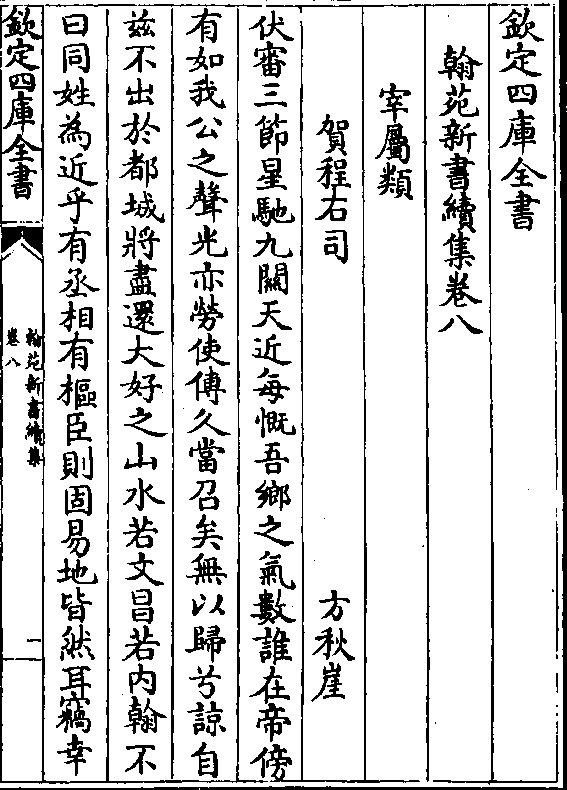 欽定四庫全書
翰苑新書續集卷八
宰屬類
賀程右司　方秋崖
伏審三節星馳九闗天近每慨吾鄉之氣數誰在帝傍
有如我公之聲光亦勞使傳久當召矣無以歸兮諒自
兹不出於都城將盡還大好之山水若文昌若内翰不
曰同姓為近乎有丞相有樞臣則固易地皆然耳竊幸
欽定四庫全書
翰苑新書續集
卷八
一